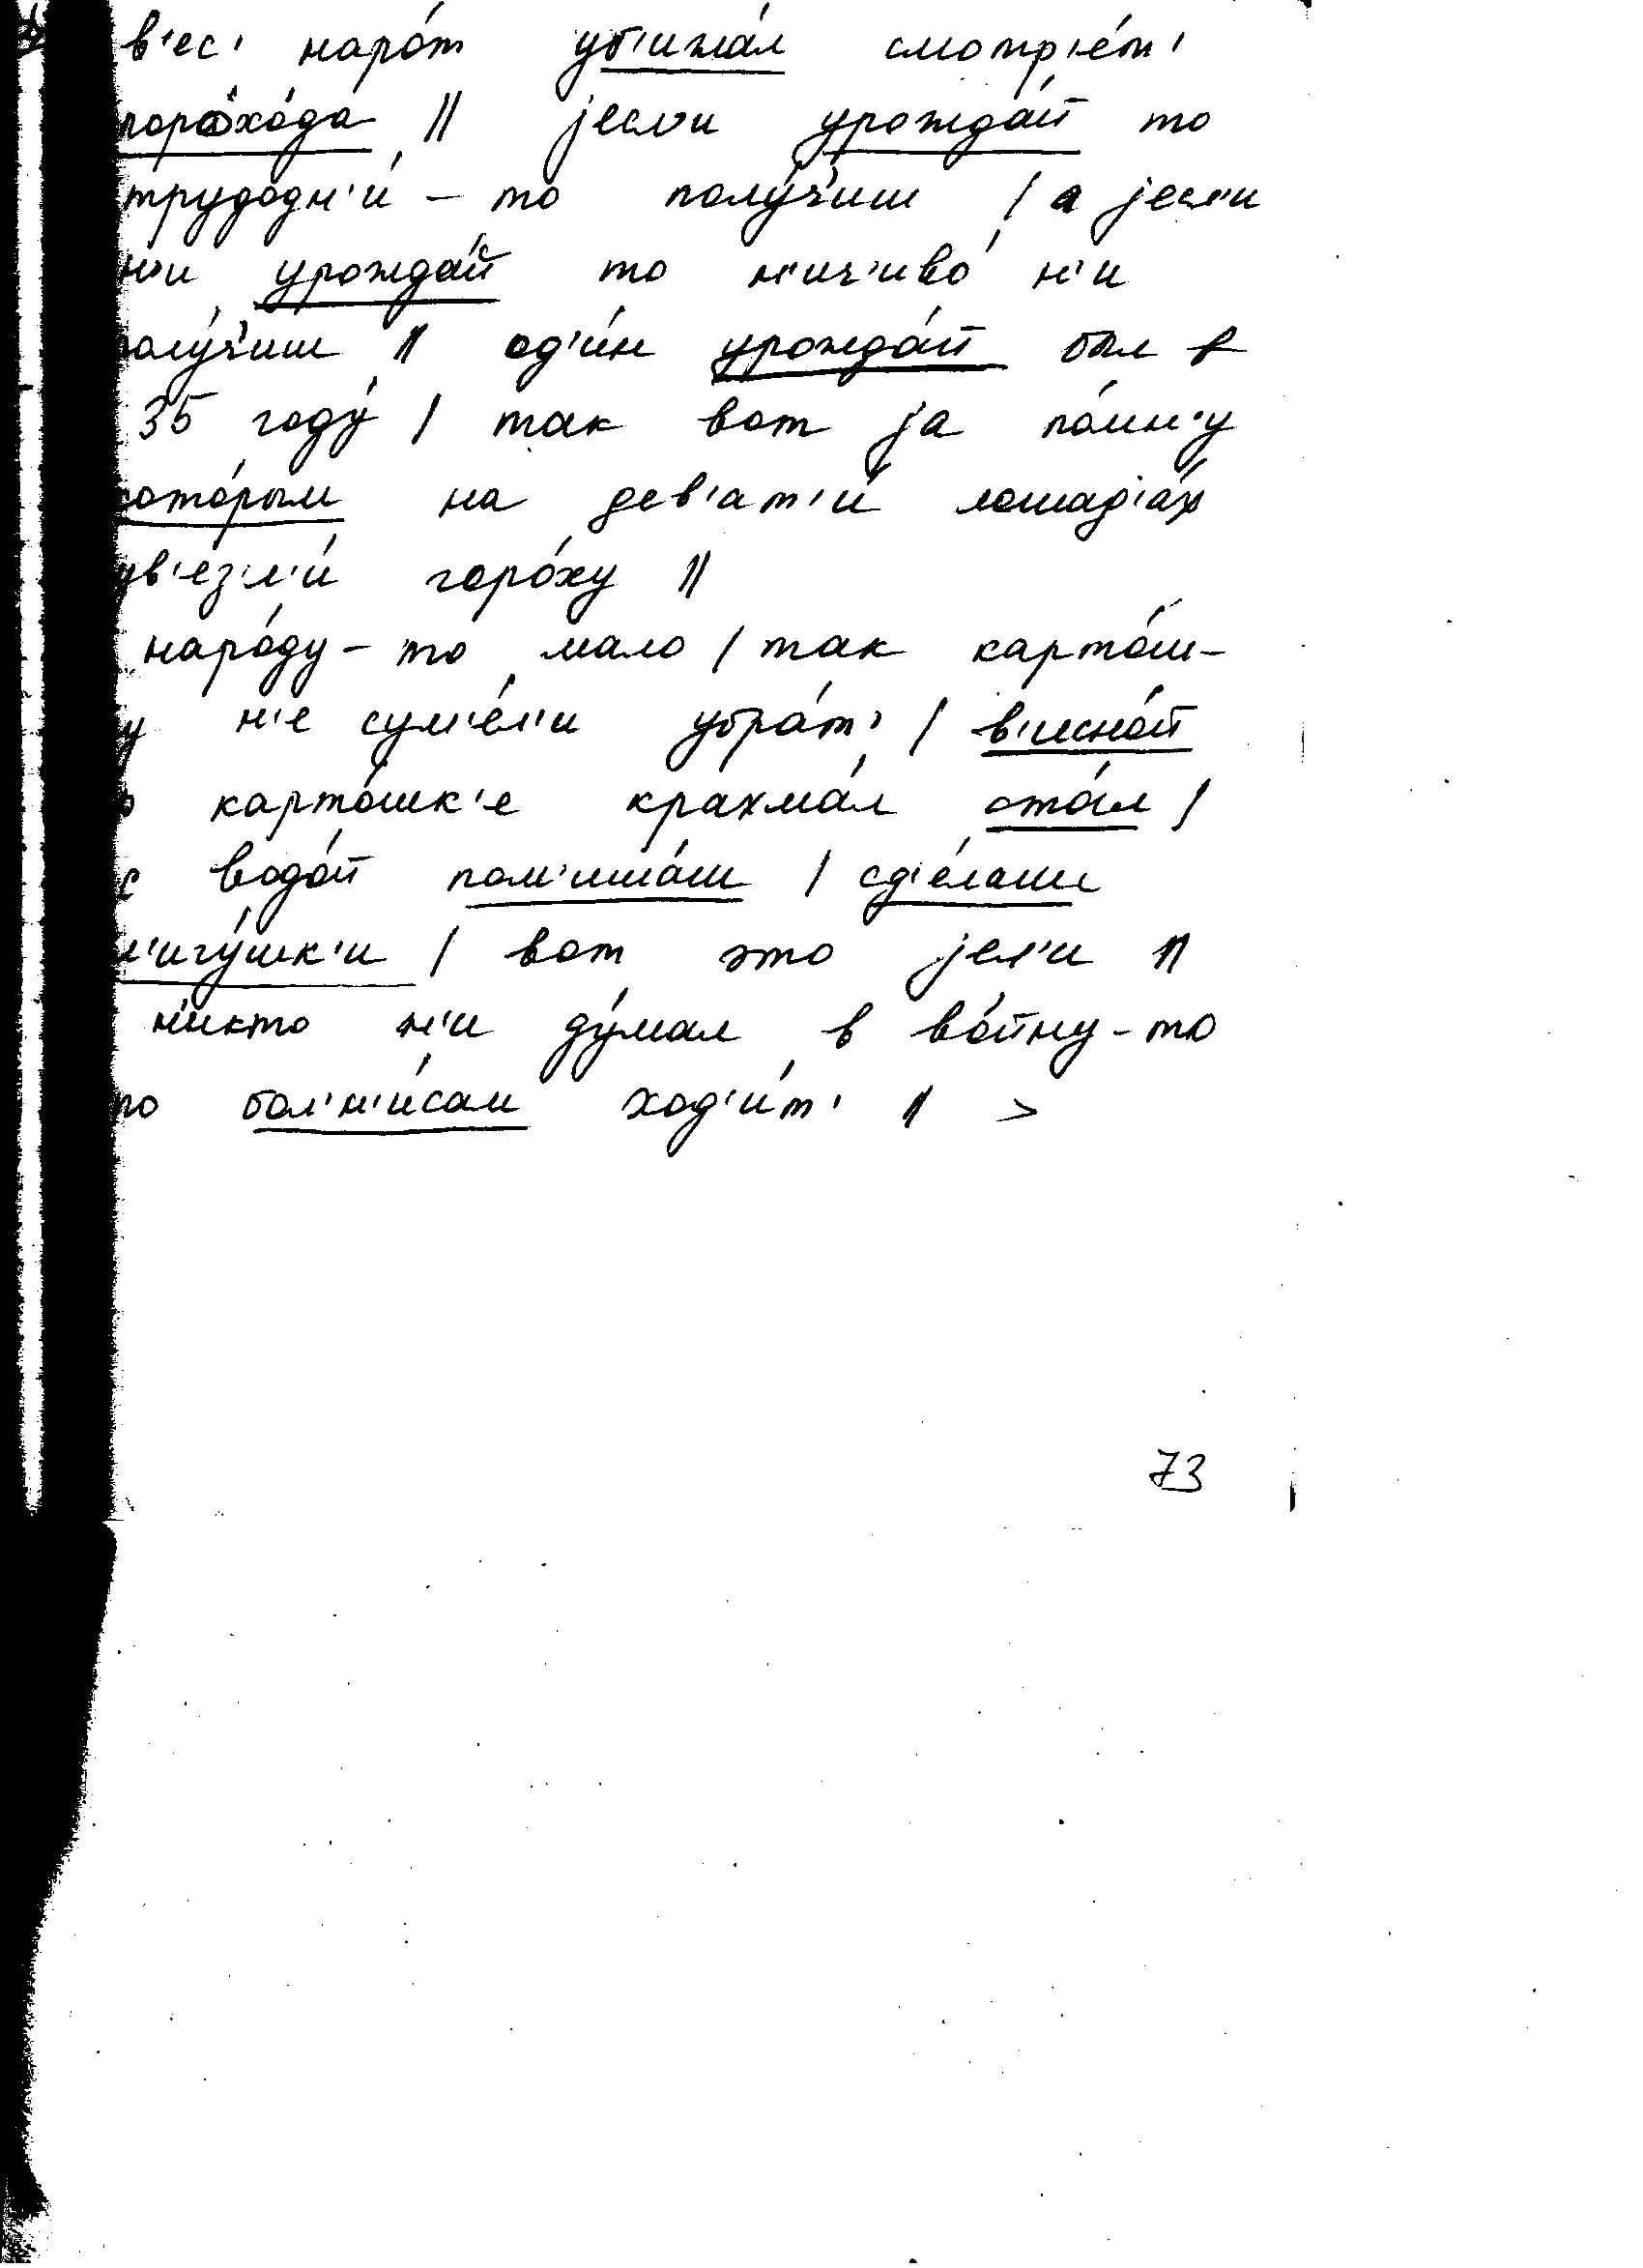 в'ес' наро́т уб'ижа́л смотр'е́т'
порохо́да || јесл'и урожда́й то
трудодн'и́ – то полу́ч'иш | а јесл'и
н'и урожда́й то н'ич'иво́ н'и
олу́ч'иш || од'и́н урожда́й был в
35 году́ | так вот ја по́мн'у
ото́рым на дев'ат'и́ лошад'а́х
ув'езл'и́ горо́ху ||
наро́ду – то мало | так карто́ш-
у н'е сум'е́л'и убра́т' | в'исно́й
карто́шк'е крахма́л ста́л |
с водо́й пом'иша́ш | сд'е́лаш
л'игу́шк'и | вот это јел'и ||
н'икто н'и ду́мал в во́йну – то
по бол'н'и́сам ход'и́т' || >
73